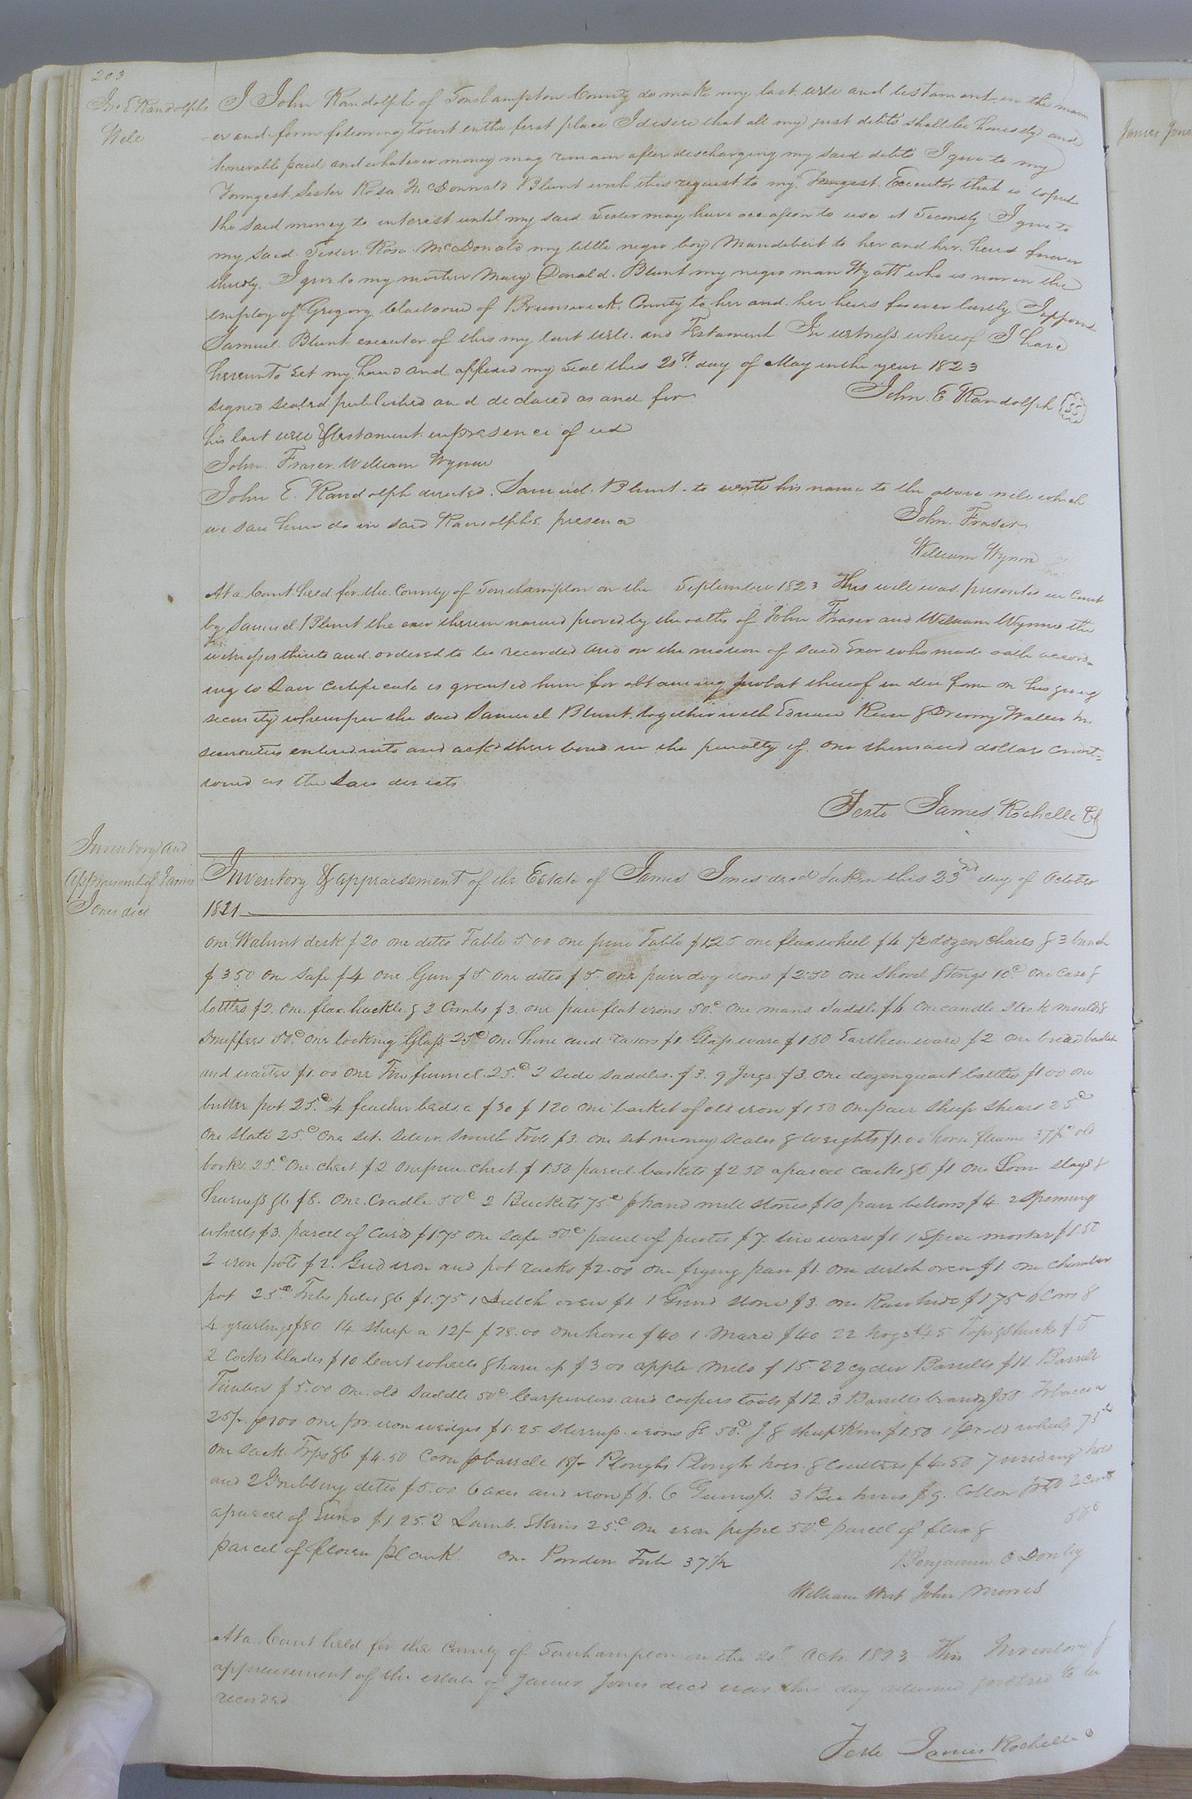 203
Jno E Randolphs
Will
I John Randolph of Southampton County do make my last will and testament in the mann
er and form following towit in the first place I desire that all my just debts shall be honestly and
honorable paid and whatever money may remain after discharging my said debts I give to my
Youngest Sister Rosa McDonnald Blunt with this request to my Executor that is
the said money to interest until my said Sister may have occasion to use it Secondly I give to
my said Sister Rosa McDonald my little negro boy Mandebert to her and her heirs forever
thirdly. I give to my mother Mary Donald Blunt my negro man Wyatt who is now in the
employ of Gregory Claiborne of Brunswick County to her and her heirs forever lastly I appoint
Samuel Blunt executor of this my last will and Testament In witness whereof I have
hereunto set my hand and affixed my seal this 20th day of May in the year 1823
signed sealed published and declared as and for John E Randolph
his last will & testament in presence of us
John Fraser William Wynne
John E. Randolph directed Samuel Blunt to write his name to the above will which
we saw him do in said Randolphs presence John Fraser
William Wynn
At a Court held for the County of Southampton on the September 1823 This will was presented in Court
by Samuel Blunt the exor therein named proved by the oaths of John Fraser and William Wynne the
witnesses thereto and ordered to be recorded and on the motion of said Exor who made oath accord-
ing to Law Certificate is granted him for obtaining probat thereof in due form on his giving
security whereupon the said Samuel Blunt together with
securities entered into and ackd their bond in the penalty of one thousand dollars condi-
tioned as the Law directs
Teste James Rochelle Cl
Inventory and
appraisment of James
Jones decd
Inventory & appraisement of the Estate of James Jones decd taken this 23rd day of October
1821
One Walnut desk $20 one ditto Table 5 00 one pine Table $1.25 one flax wheel $4 1/2 dozen chairs & 3 bench
$3 50 One Safe $4 One Gun $5 one ditto $5. one pair dog irons $2.50 one shovel & tongs 10c One case &
bottles $2. one flax hackle & 2 Combs $3. one pair flat irons 50c one mans saddle $4 One candle stick moulds &
snuffers 50c one looking Glass 25c One hone and razors $1. Glass ware $1 50 Earthen ware $2 one bread basket
and waiter $1.00 one funnel 25c 2 side saddles $3. 9 Jugs $3. one dozen quart bottles $1 00 one
butter pot 25c 4 feather beds a $30 $120 One basket of old iron $1 50 One pair sheep shears 25c
One slate 25c One set Smith Tools $3. one set money scales & weights $1.00 horn fleame 37 1/2 old
books 25c One chest $2 One pine chest $1.50 parcel baskets $2 50 a parcel casks &c $1 One Loom slays &
harness &c $8. One Cradle 50c 2 Buckets 75c hand mill stones $10 pair bellows $4 2 spinning
wheels $3. parcel of Cards $1.75 one Safe 50c parcel of pewter $7. tin ware $1 1 Spice mortar $1.50
2 iron pots $2. Grid iron and pot racks $2.00 one frying pan $1. one dutch oven $1 one chamber
pot 25c Tubs pails &c $1.75 1 Dutch oven $1 1 Grind stone $3. one Raw hide $1 75 Cows &
4 yearlings $80 14 sheep a 12/- $28.00 One horse $40 1 Mare $40 22 hogs $45 Tops & shucks $5
2 stacks blades $10 1 cart wheels & harness $3 00 apple Mill $15. 22 cyder Barrells $11. Barrell
Timber $5.00 One old Saddle 50c Carpenters and coopers tools $12 3 Barrells brandy Tobacco
25/- one pr iron wedges $1.25 stirrup irons &c 50c sheep skins $1.50 1 pr old wheels 75c
One stack Tops &c $4.50 Corn pr barrell 15/- Ploughs Plough hoes & coulters $4.50 7 weeding hoes
and 2 Grubbing ditto $5.00 6 axes and iron 3 Bee hives Cotton
a parcel of 25. 2 Lamb Skins 25c one iron pestle 50c parcel of flax & 50c
parcel of plank. One Powder Tub 37 1/2 Benjamin C Denby
William West John Morris
At a Court held for the County of Southampton on the 20th Octr 1823 This Inventory &
appraisement of the estate of James Jones decd was this day returned & ordered to be
recorded
Teste James Rochelle C
James Jone